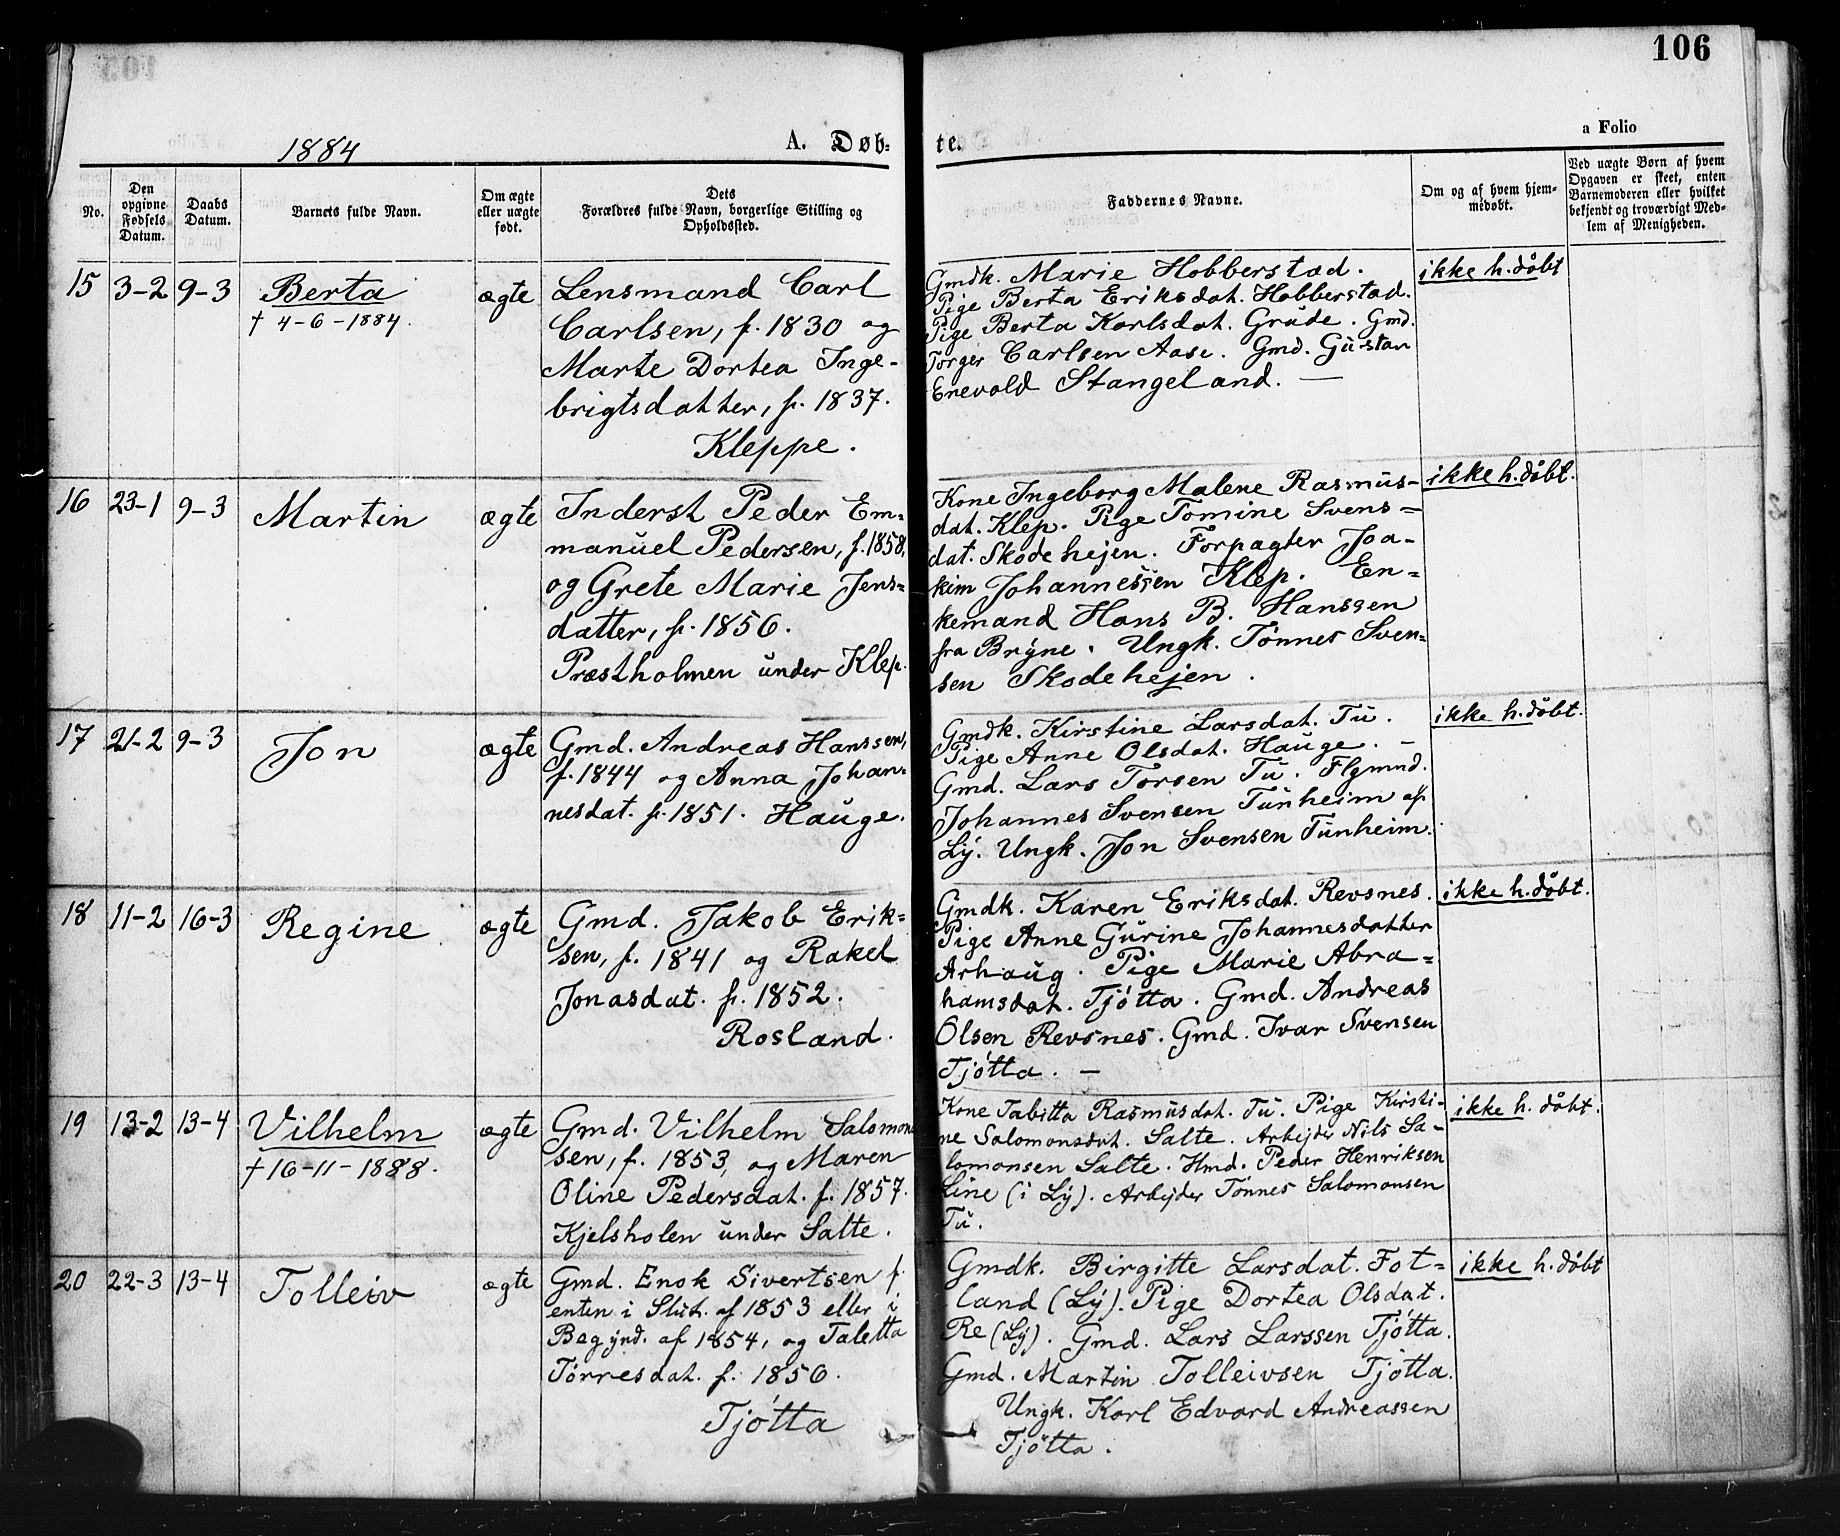 106
1884
A. Døb-
te.
a Folio
No.
Den
opgivne
Fødsels
Datum.
Daabs
Datum.
Barnets fulde Navn.
Om ægte
eller uægte
født.
Dets
Forældres fulde Navn, borgerlige Stilling og
Opholdssted.
Faddernes Navne.
Om og af hvem hjem-
medøbt.
Ved uægte Børn af hvem
Opgaven er skeet, enten
Barnemoderen eller hvilket
bekjendt og troværdigt Med-
lem af Menigheden.
15 3-2 9-3 Berta ægte
† 4-6-1884.
Lensmand Carl
Carlsen, f. 1830 og
Marte Dortea Inge-
brigtsdatter, f. 1837.
Kleppe.
Gmdk. Marie Hobberstad.
Pige Berta Eriksdat. Hobberstad.
Pige Berta Karlsdat. Grude. Gmd.
Torger Carlsen Aase. Gmd. Gustav
Enevold Stangeland. —
ikke h. døbt
16 23-1 9-3 Martin ægte
Inderst Peder Em-
manuel Pedersen, f. 1858,
og Grete Marie Jens-
datter, f. 1856.
Præstholmen under Klep.
Kone Ingeborg Malene Rasmus-
dat. Klep. Pige Tomine Svens-
dat. Skodehejen. Forpagter Joa-
kim Johannessen Klep. En-
kemand Hans B. Hanssen
fra Bryne. Ungk. Tønnes Sven-
sen Skodehejen.
ikke h. døbt.
17 21-2 9-3 Jon ægte
Gmd. Andreas Hanssen,
f. 1844 og Anna Johan-
nesdat. f. 1851. Hauge.
Gmdk. Kirstine Larsdat. Tu.
Pige Anne Olsdat. Hauge. —
Gmd. Lars Torsen Tu. Flgmnd.
Johannes Svensen Tunheim af
Ly. Ungk. Jon Svensen Tunheim.
ikke h. døbt.
18 11-2 16-3 Regine ægte
Gmd. Jakob Erik-
sen, f. 1841 og Rakel
Jonasdat. f. 1852.
Rosland.
Gmdk. Karen Eriksdat. Revsnes.
Pige Anne Gurine Johannesdatter
Arhaug. Pige Marie Abra-
hamsdat. Tjøtta. Gmd. Andreas
Olsen Revsnes. Gmd. Ivar Svensen
Tjøtta. —
ikke h. døbt.
19 13-2 13-4 Vilhelm ægte
† 16-11-1888.
Gmd. Vilhelm Salomon
sen, f. 1853, og Maren
Oline Pedersdat. f. 1857.
Kjelsholen under Salte.
Kone Tabitta Rasmusdat. Tu. Pige Kirsti-
ne Salomonsdat. Salte. Arbejder Nils Sa-
lomonsen Salte. Hmd. Peder Henriksen
Line (i Ly). Arbejder Tønnes Salomonsen
Tu.
ikke h. døbt.
20 22-3 13-4 Tolleiv ægte
Gmd. Enok Sivertsen f.
enten i Slut. af 1853 eller i
Begynd. af 1854, og Taletta
Tørresdat. f. 1856.
Tjøtta
Gmdk. Birgitte Larsdat. Fot-
land (Ly). Pige Dortea Olsdat.
Re (Ly). Gmd. Lars Larssen Tjøtta.
Gmd. Martin Tolleivsen Tjøtta.
Ungk. Karl Edvard Andreassen
Tjøtta.
ikke h. døbt